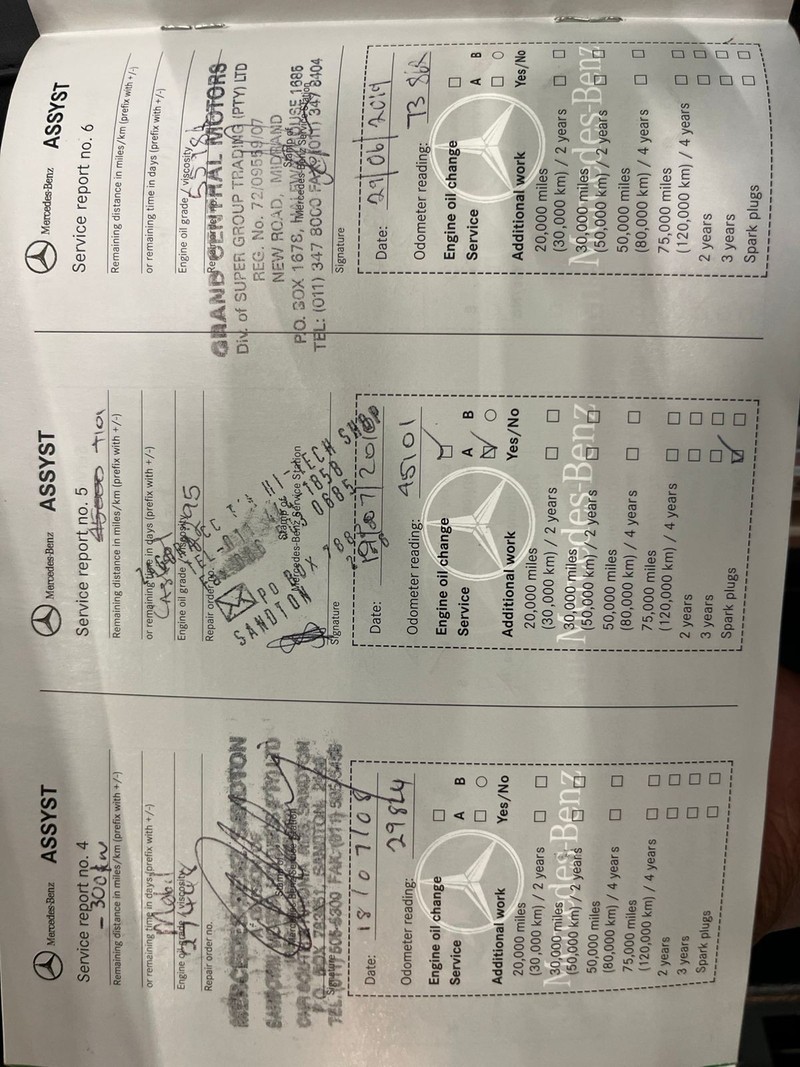 Mercedes-Benz ASSYST
Service report no. 4
- 300 km
Remaining distance in miles/km (prefix with +/-)
or remaining time in days (prefix with +/-)
Mobil
Engine oil grade / viscosity
Repair order no.
SANDTON
Signature
Date: 18/07/08
Odometer reading: 29824
Engine oil change
A B
Service
Yes/No
Additional work
20,000 miles
(30,000 km) / 2 years
30,000 miles
(50,000 km) / 2 years
50,000 miles
(80,000 km) / 4 years
75,000 miles
(120,000 km) / 4 years
2 years
3 years
Spark plugs
Mercedes-Benz
Mercedes-Benz ASSYST
Service report no. 5
Remaining distance in miles/km (prefix with +/-)
or remaining time in days (prefix with +/-)
Castrol
Engine oil grade / viscosity
Repair order no.
Stamp of
Mercedes-Benz Service Station
PO BOX
SANDTON
Signature
Date:
Odometer reading: 45101
Engine oil change
A B
Service
Yes/No
Additional work
20,000 miles
(30,000 km) / 2 years
30,000 miles
(50,000 km) / 2 years
50,000 miles
(80,000 km) / 4 years
75,000 miles
(120,000 km) / 4 years
2 years
3 years
Spark plugs
Mercedes-Benz
Mercedes-Benz ASSYST
Service report no. 6
Remaining distance in miles/km (prefix with +/-)
or remaining time in days (prefix with +/-)
Engine oil grade / viscosity
GRAND CENTRAL MOTORS
Div. of SUPER GROUP TRADING (PTY) LTD
REG. No. 72/09559/07
NEW ROAD, MIDRAND
Stamp of
Mercedes-Benz Service Station
P.O. BOX 1678, HALFWAY HOUSE 1685
TEL: (011) 347 8000 FAX: (011) 347 8404
Signature
Date: 29/06/2019
Odometer reading: 73
Engine oil change
A B
Service
Yes/No
Additional work
20,000 miles
(30,000 km) / 2 years
30,000 miles
(50,000 km) / 2 years
50,000 miles
(80,000 km) / 4 years
75,000 miles
(120,000 km) / 4 years
2 years
3 years
Spark plugs
Mercedes-Benz